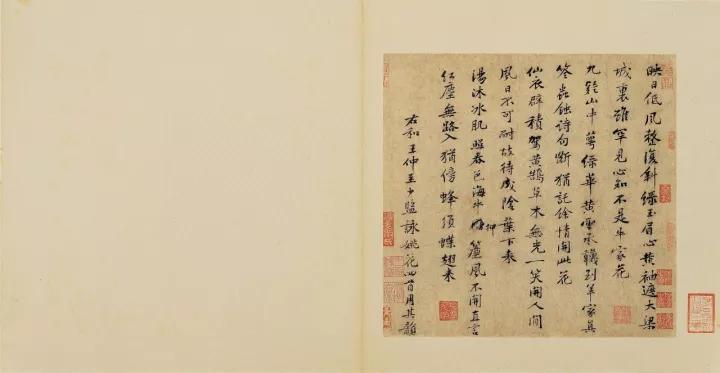 映日低風整復斜綠玉眉心黃袖遮大梁
城裏雖罕見心知不是牛家花
九疑山中萼綠華黃雲承襪到羊家真
筌蟲蝕詩句斷猶記餘情開此花
仙衣襞積駕黃鵠草木無光一笑開人間
風日不可耐故待成陰葉下來
湯沐冰肌照春色海牛押簾風不開直言
紅塵無路入猶傍蜂須蝶翅來
右和王仲至少監詠姚花四首用其韻